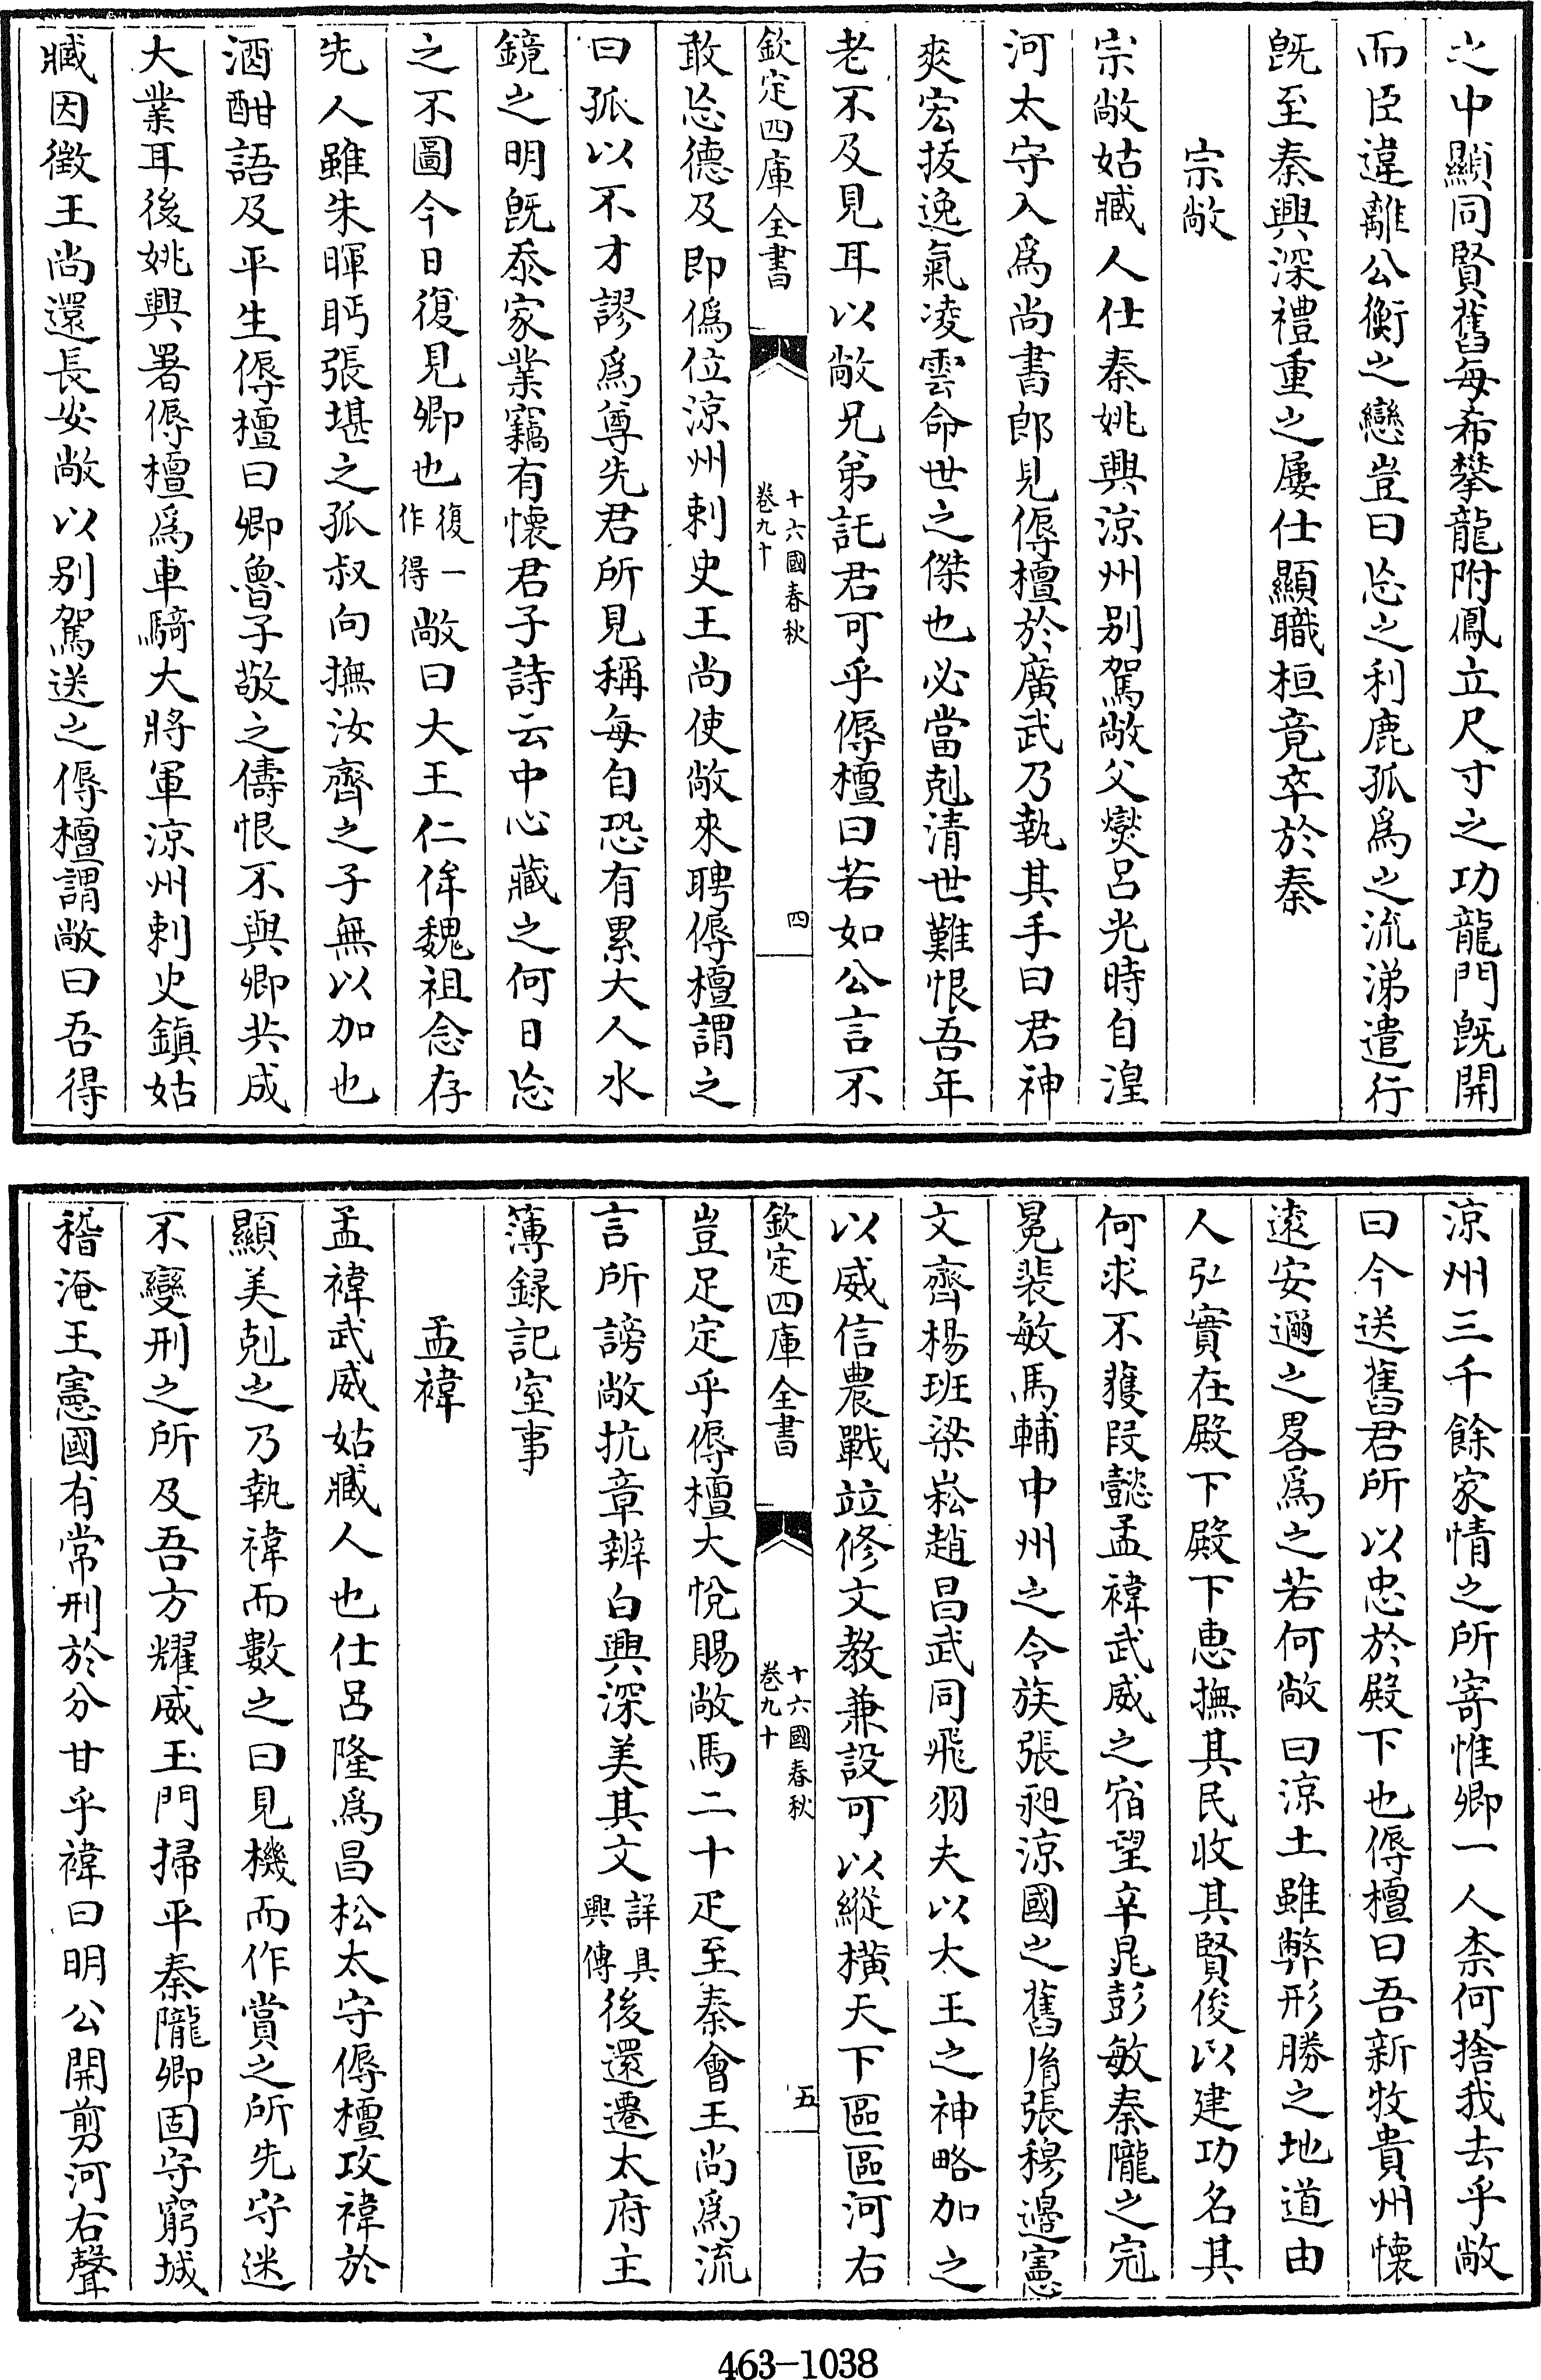 之中顯同賢舊每希攀龍附鳳立尺寸之功龍門旣開
而臣違離公衡之戀豈曰忘之利鹿孤爲之流涕遣行
旣至秦興深禮重之屢仕顯職桓竟卒於秦
宗敞
宗敞姑臧人仕秦姚興涼州别駕敞父爕呂光時自湟
河太守入爲尚書郎見傉檀於廣武乃執其手曰君神
爽宏拔逸氣凌雲命世之傑也必當剋清世難恨吾年
老不及見耳以敞兄弟託君可乎傉檀曰若如公言不
欽定四庫全書
十六國春秋
卷九十
四
敢忘德及即僞位涼州刺史王尚使敞來聘傉檀謂之
曰孤以不才謬爲尊先君所見稱每自恐有累大人水
鏡之明旣忝家業竊有懷君子詩云中心藏之何日忘
之不圖今日復見卿也復一作得敞曰大王仁侔魏祖念存
先人雖朱暉眄張堪之孤叔向撫汝齊之子無以加也
酒酣語及平生傉檀曰卿魯子敬之儔恨不與卿共成
大業耳後姚興署傉檀爲車騎大將軍涼州刺史鎮姑
臧因徵王尚還長安敞以别駕送之傉檀謂敞曰吾得
涼州三千餘家情之所寄惟卿一人柰何捨我去乎敞
曰今送舊君所以忠於殿下也傉檀曰吾新牧貴州懷
遠安邇之畧爲之若何敞曰涼土雖弊形勝之地道由
人弘實在殿下殿下惠撫其民收其賢俊以建功名其
何求不獲段懿孟褘武威之宿望辛晁彭敏秦隴之冠
冕裴敏馬輔中州之令族張昶涼國之舊胤張穆邊憲
文齊楊班梁崧趙昌武同飛羽夫以大王之神略加之
以威信農戰竝修文教兼設可以縱橫天下區區河右
欽定四庫全書
十六國春秋
卷九十
五
豈足定乎傉檀大悅賜敞馬二十疋至秦會王尚爲流
言所謗敞抗章辨白興深美其文詳具興傳後還遷太府主
簿録記室事
孟褘
孟褘武威姑臧人也仕呂隆爲昌松太守傉檀攻褘於
顯美剋之乃執褘而數之曰見機而作賞之所先守迷
不變刑之所及吾方耀威玉門掃平秦隴卿固守窮城
稽淹王憲國有常刑於分甘乎褘曰明公開剪河右聲
463-1038